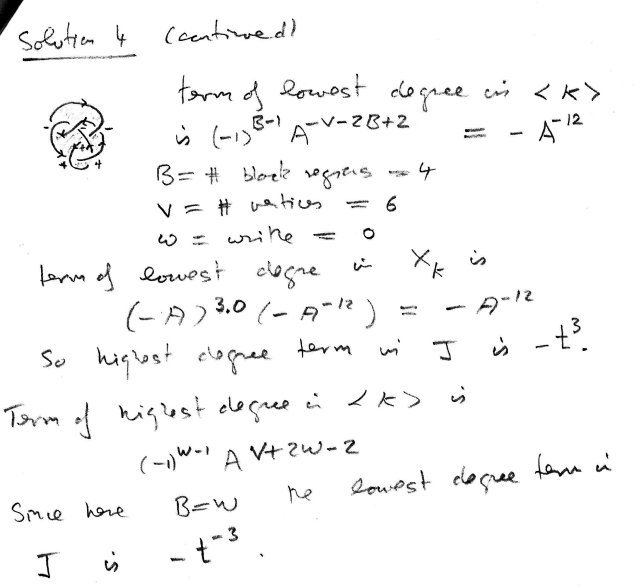 Solution 4 (continued)
term of lowest degree in <K>
is (-1)^{B-1} A^{-V-2B+2} = - A^{-12}
B = # black regions = 4
V = # vertices = 6
w = writhe = 0
term of lowest degre in X_K is
(-A)^{3.0} (-A^{-12}) = - A^{-12}
So highest degree term in J is - t^3.
Term of highest degree in <K> is
(-1)^{W-1} A^{V+2W-2}
Since here B=W the lowest degree term in
J is - t^{-3}.